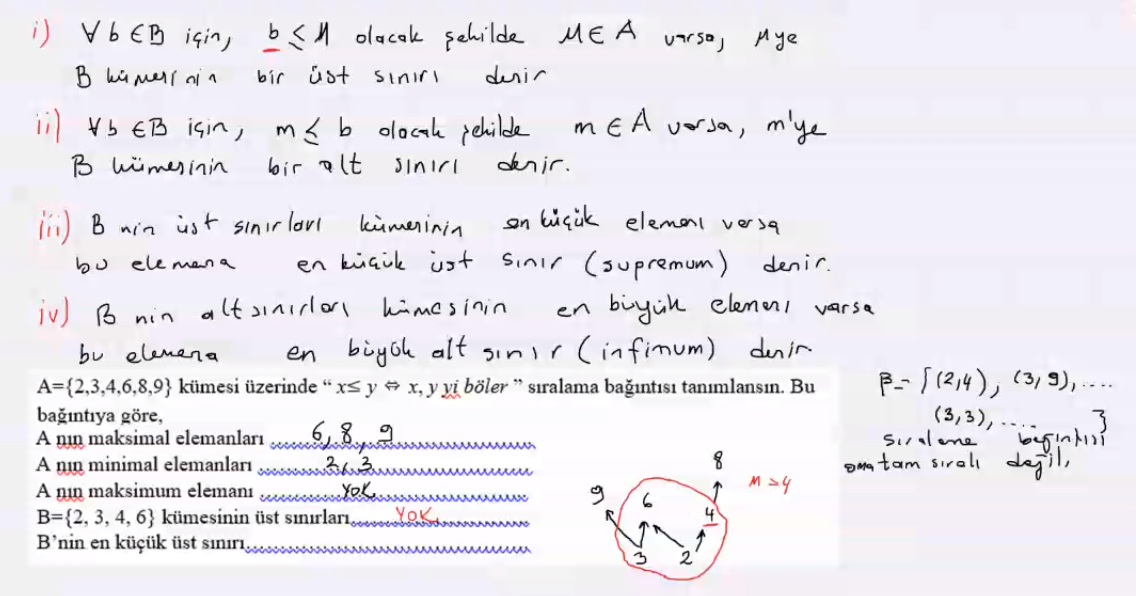 i) ∀ b ∈ B için, b ≤ M olacak şekilde M ∈ A varsa, M ye
B kümesinin bir üst sınırı denir
ii) ∀ b ∈ B için, m ≤ b olacak şekilde m ∈ A varsa, m'ye
B kümesinin bir alt sınırı denir.
iii) B nin üst sınırları kümesinin en küçük elemanı varsa
bu elemana en küçük üst sınır (supremum) denir.
iv) B nin alt sınırları kümesinin en büyük elemanı varsa
bu elemana en büyük alt sınır (infimum) denir
A={2,3,4,6,8,9} kümesi üzerinde “ x≤ y ⇔ x, y yi böler ” sıralama bağıntısı tanımlansın. Bu
bağıntıya göre,
A nın maksimal elemanları 6, 8, 9
A nın minimal elemanları 2, 3
A nın maksimum elemanı YOK
B={2, 3, 4, 6} kümesinin üst sınırları YOK
B’nin en küçük üst sınırı
β = {(2,4), (3,9), ....
(3,3), .... }
sıralama bağıntısı
ama tam sıralı değil,
8
9 6 4 M > 4
3 2